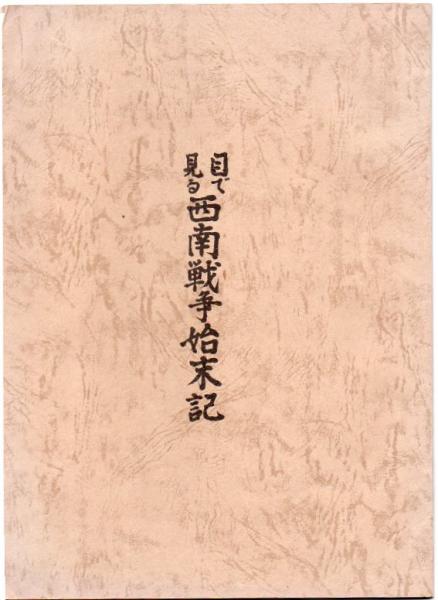 目で見る西南戦争始末記